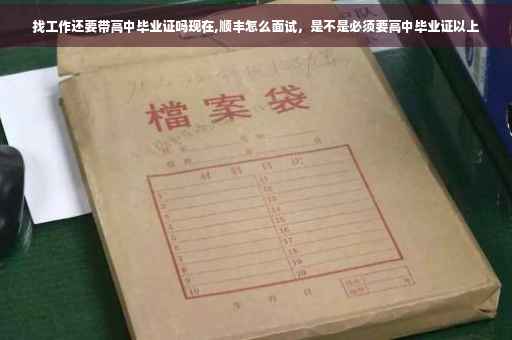 找工作还要带高中毕业证吗现在,顺丰怎么面试，是不是必须要高中毕业证以上
檔案袋
材料目次
1 11
2 12
3 13
4 14
5 15
6 16
7 17
8 18
9 19
10 20
年 月 日